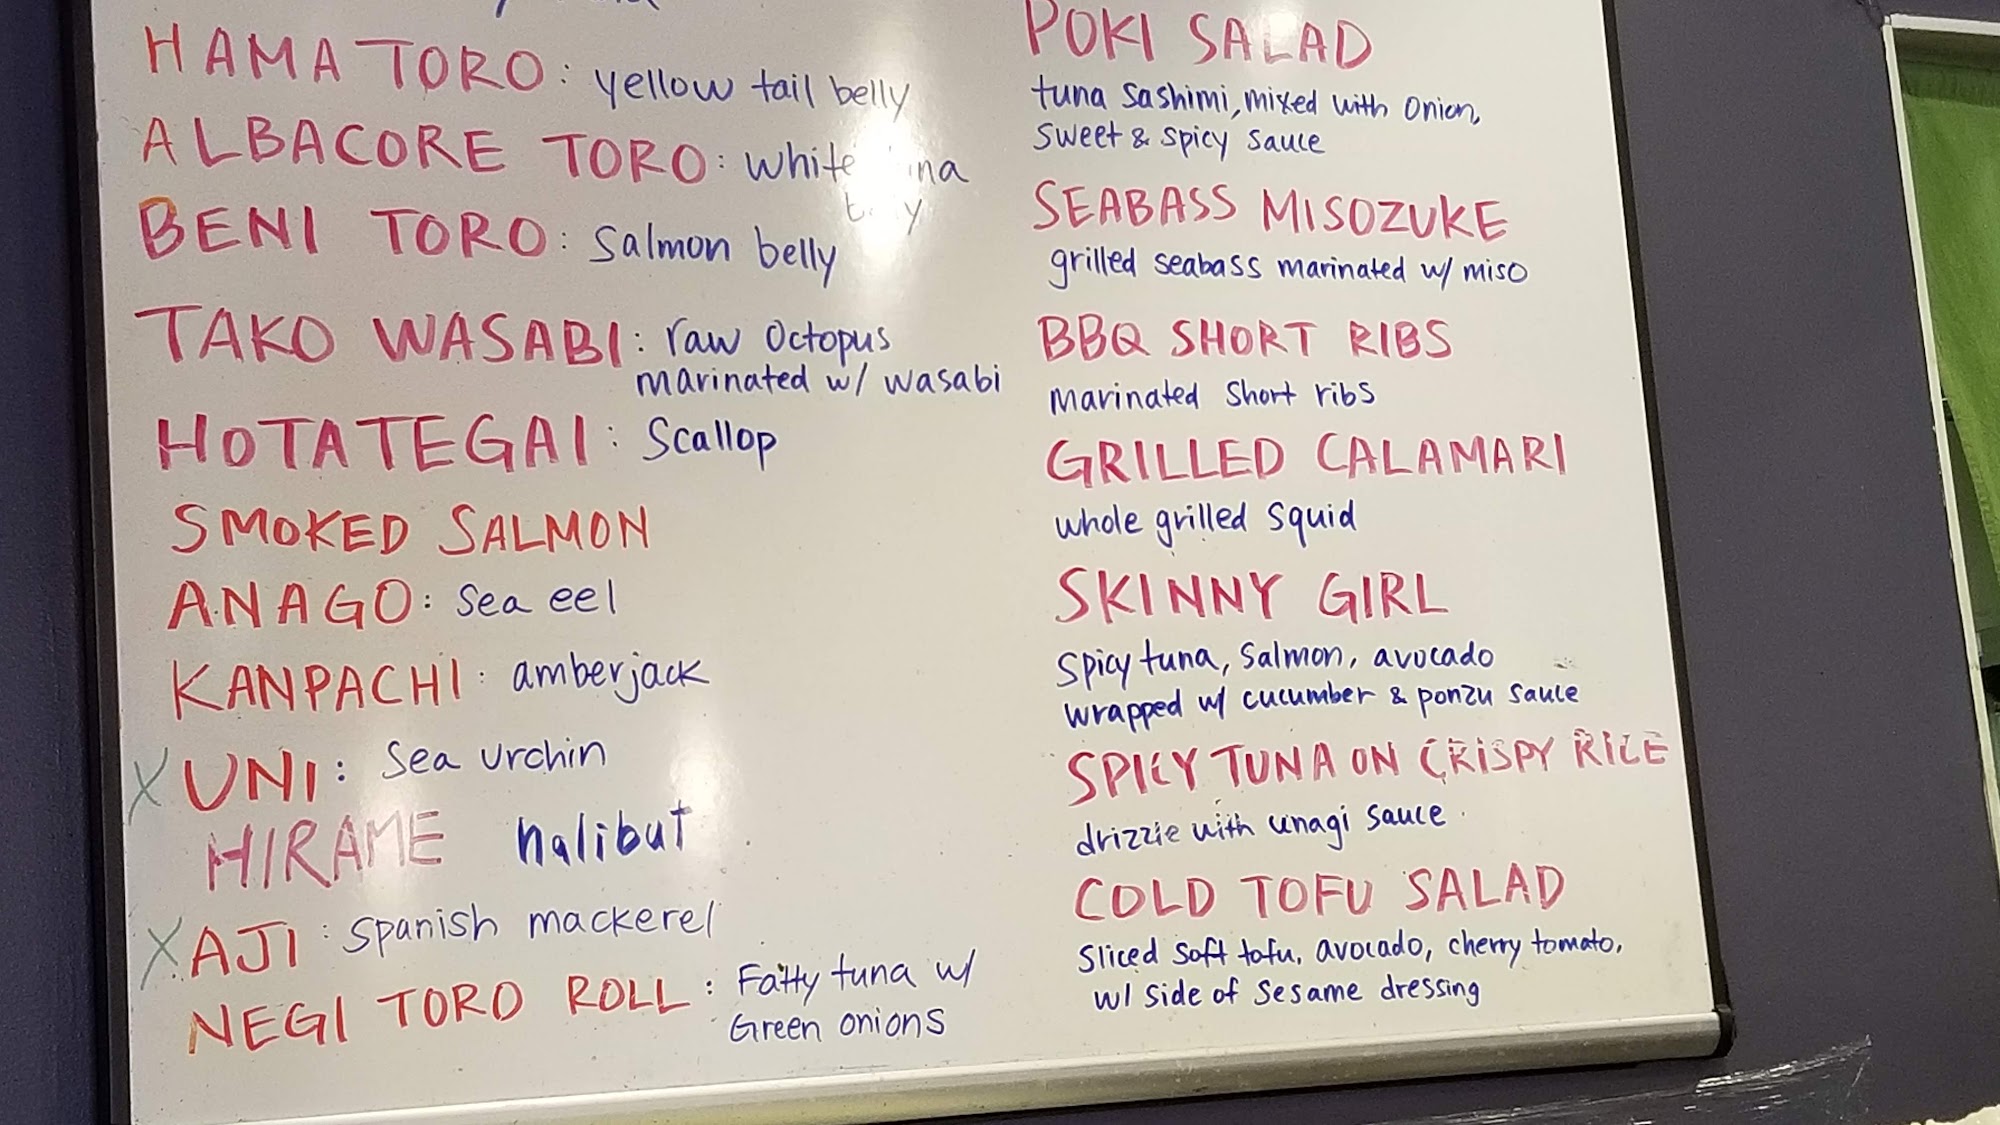 HAMA TORO: yellow tail belly
ALBACORE TORO: white
BENI TORO: Salmon belly
TAKO WASABI: raw Octopus
marinated w/ wasabi
HOTATEGAI: Scallop
SMOKED SALMON
ANAGO: Sea eel
KANPACHI: amberjack
X UNI: Sea urchin
HIRAME halibut
X AJI: Spanish mackerel
NEGI TORO ROLL: Fatty tuna w/
Green onions
POKI SALAD
tuna sashimi, mixed with Onion,
Sweet & Spicy Sauce
SEABASS MISOZUKE
grilled seabass marinated w/ miso
BBQ SHORT RIBS
Marinated Short ribs
GRILLED CALAMARI
whole grilled Squid
SKINNY GIRL
Spicy tuna, Salmon, avocado
wrapped w/ cucumber & ponzu sauce
SPICY TUNA ON CRISPY RICE
drizzle with unagi sauce
COLD TOFU SALAD
Sliced Soft tofu, avocado, cherry tomato,
w/ side of Sesame dressing